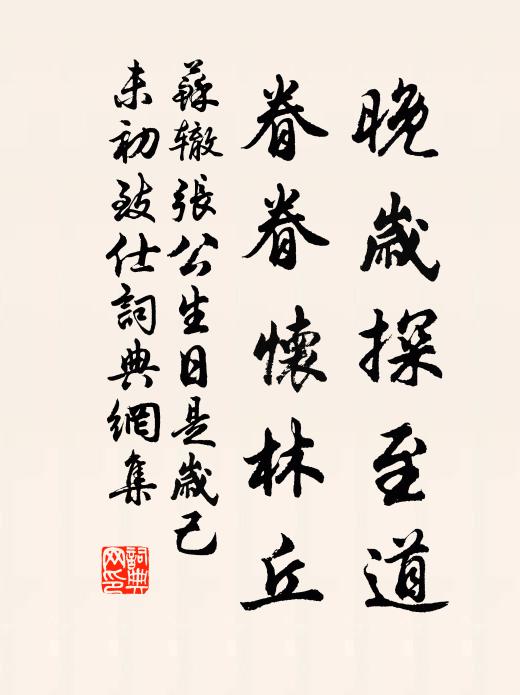 晚歲探至道
眷眷懷林丘
蘇轍張公生日是歲己
未初致仕詞典網集
詞典網印